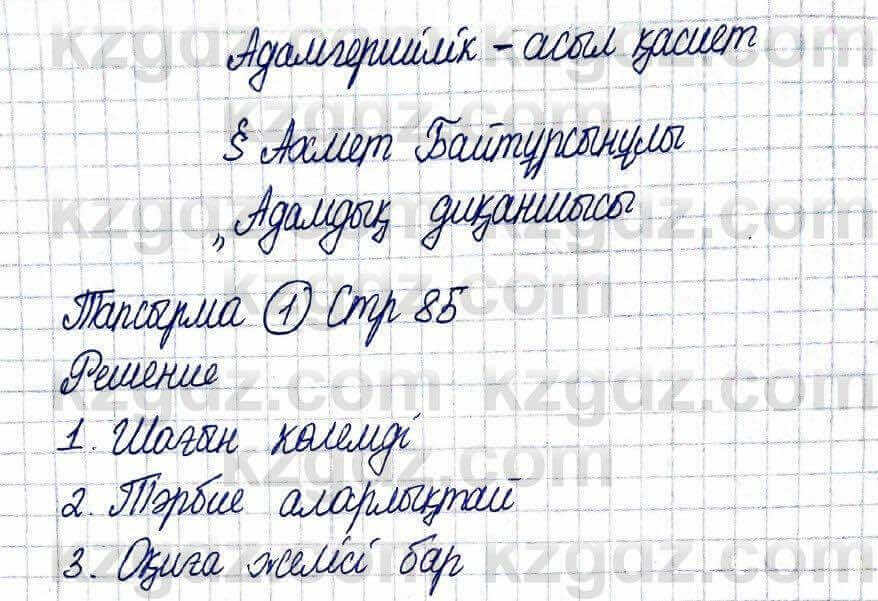 Адамгершілік - асыл қасиет
§ Ахмет Байтұрсынұлы
„Адамдық диқаншысы
Тапсырма 1 Стр 85
Решение
1. Шағын көлемді
2. Тәрбие аларлықтай
3. Оқиға желісі бар